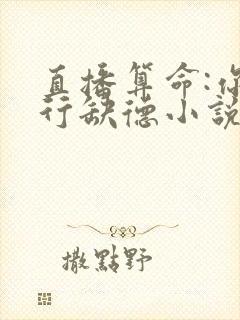 直播算命:你
行缺德小說
撒點野